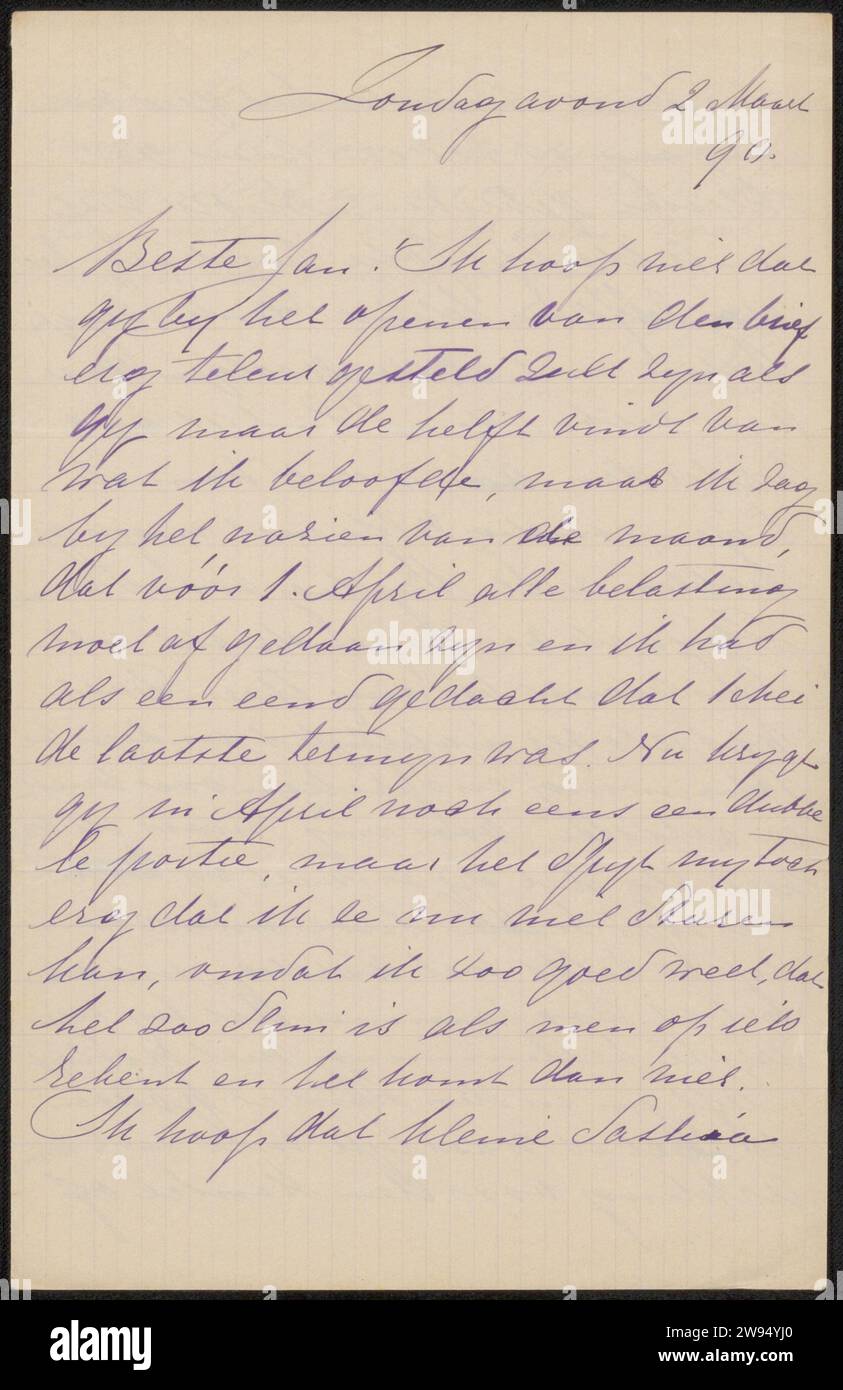 Zondag avond 2 Maart
90.
Beste Jan! Ik hoop niet dat
gy by het openen van den brief
erg teleur gesteld zult zyn als
gy maar de helft vindt van
wat ik beloofde, maar ik zag
by het nazien van de maand,
dat vóór 1. April alle belasting
moet af gedaan zyn en ik had
als een eend gedacht dat 1 Mei
de laatste termyn was. Nu krygt
gy in April noch eens een dubbe
le portie, maar het spyt my toch
erg dat ik ze nu niet sturen
kan, omdat ik zoo goed weet, dat
het zoo slim is als men op iets
rekent en het komt dan niet.
Ik hoop dat kleine Saskia
alamy
www.alamy.com
Image ID: 2W94YJ0